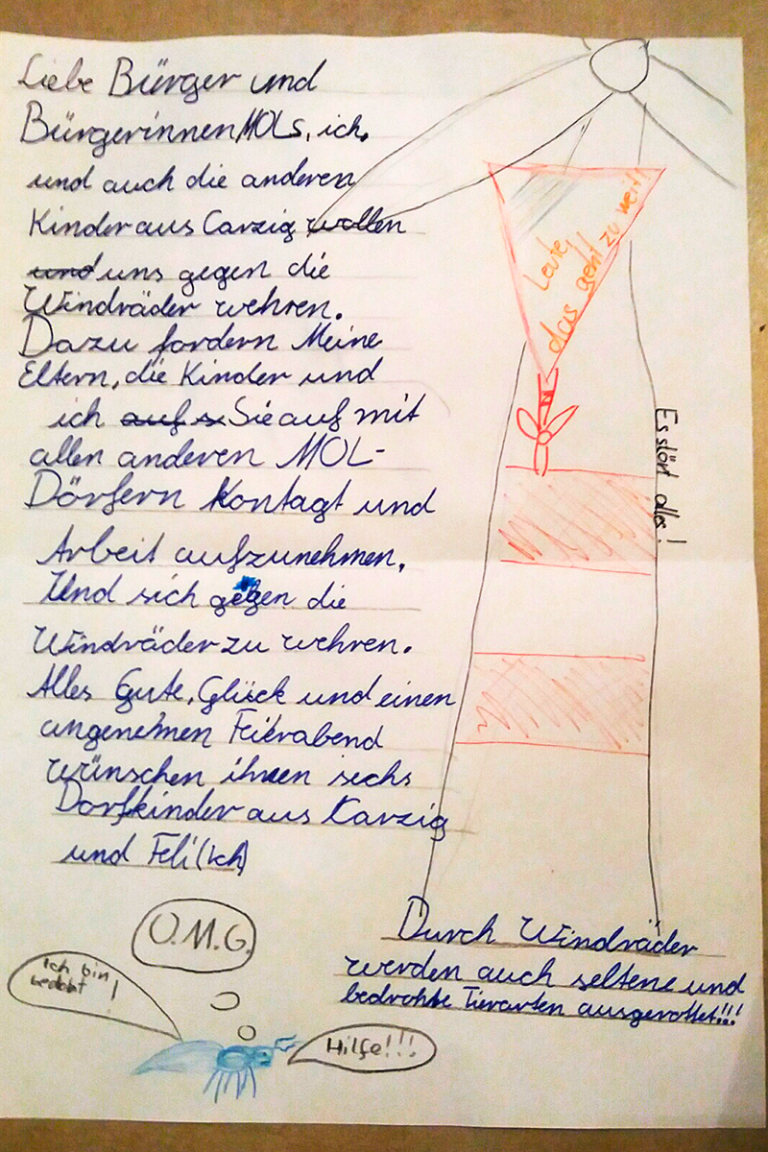 Liebe Bürger und
Bürgerinnen MOLs, ich,
und auch die anderen
Kinder aus Carzig wollen
und uns gegen die
Windräder wehren.
Dazu fordern Meine
Eltern, die Kinder und
ich auf s. Sie auf mit
allen anderen MOL-
Dörfern Kontagt und
Arbeit aufzunehmen.
Und sich gegen die
Windräder zu wehren.
Alles Gute, Glück und einen
angenehmen Feierabend
wünschen ihnen sechs
Dorfkinder aus Karzig
und Feli (Ich)
Leute,
das geht zu weit!
Es stört alles!
Durch Windräder
werden auch seltene und
bedrohte Tierarten ausgerottet!!!
O.M.G.
Ich bin
bedroht!
Hilfe!!!